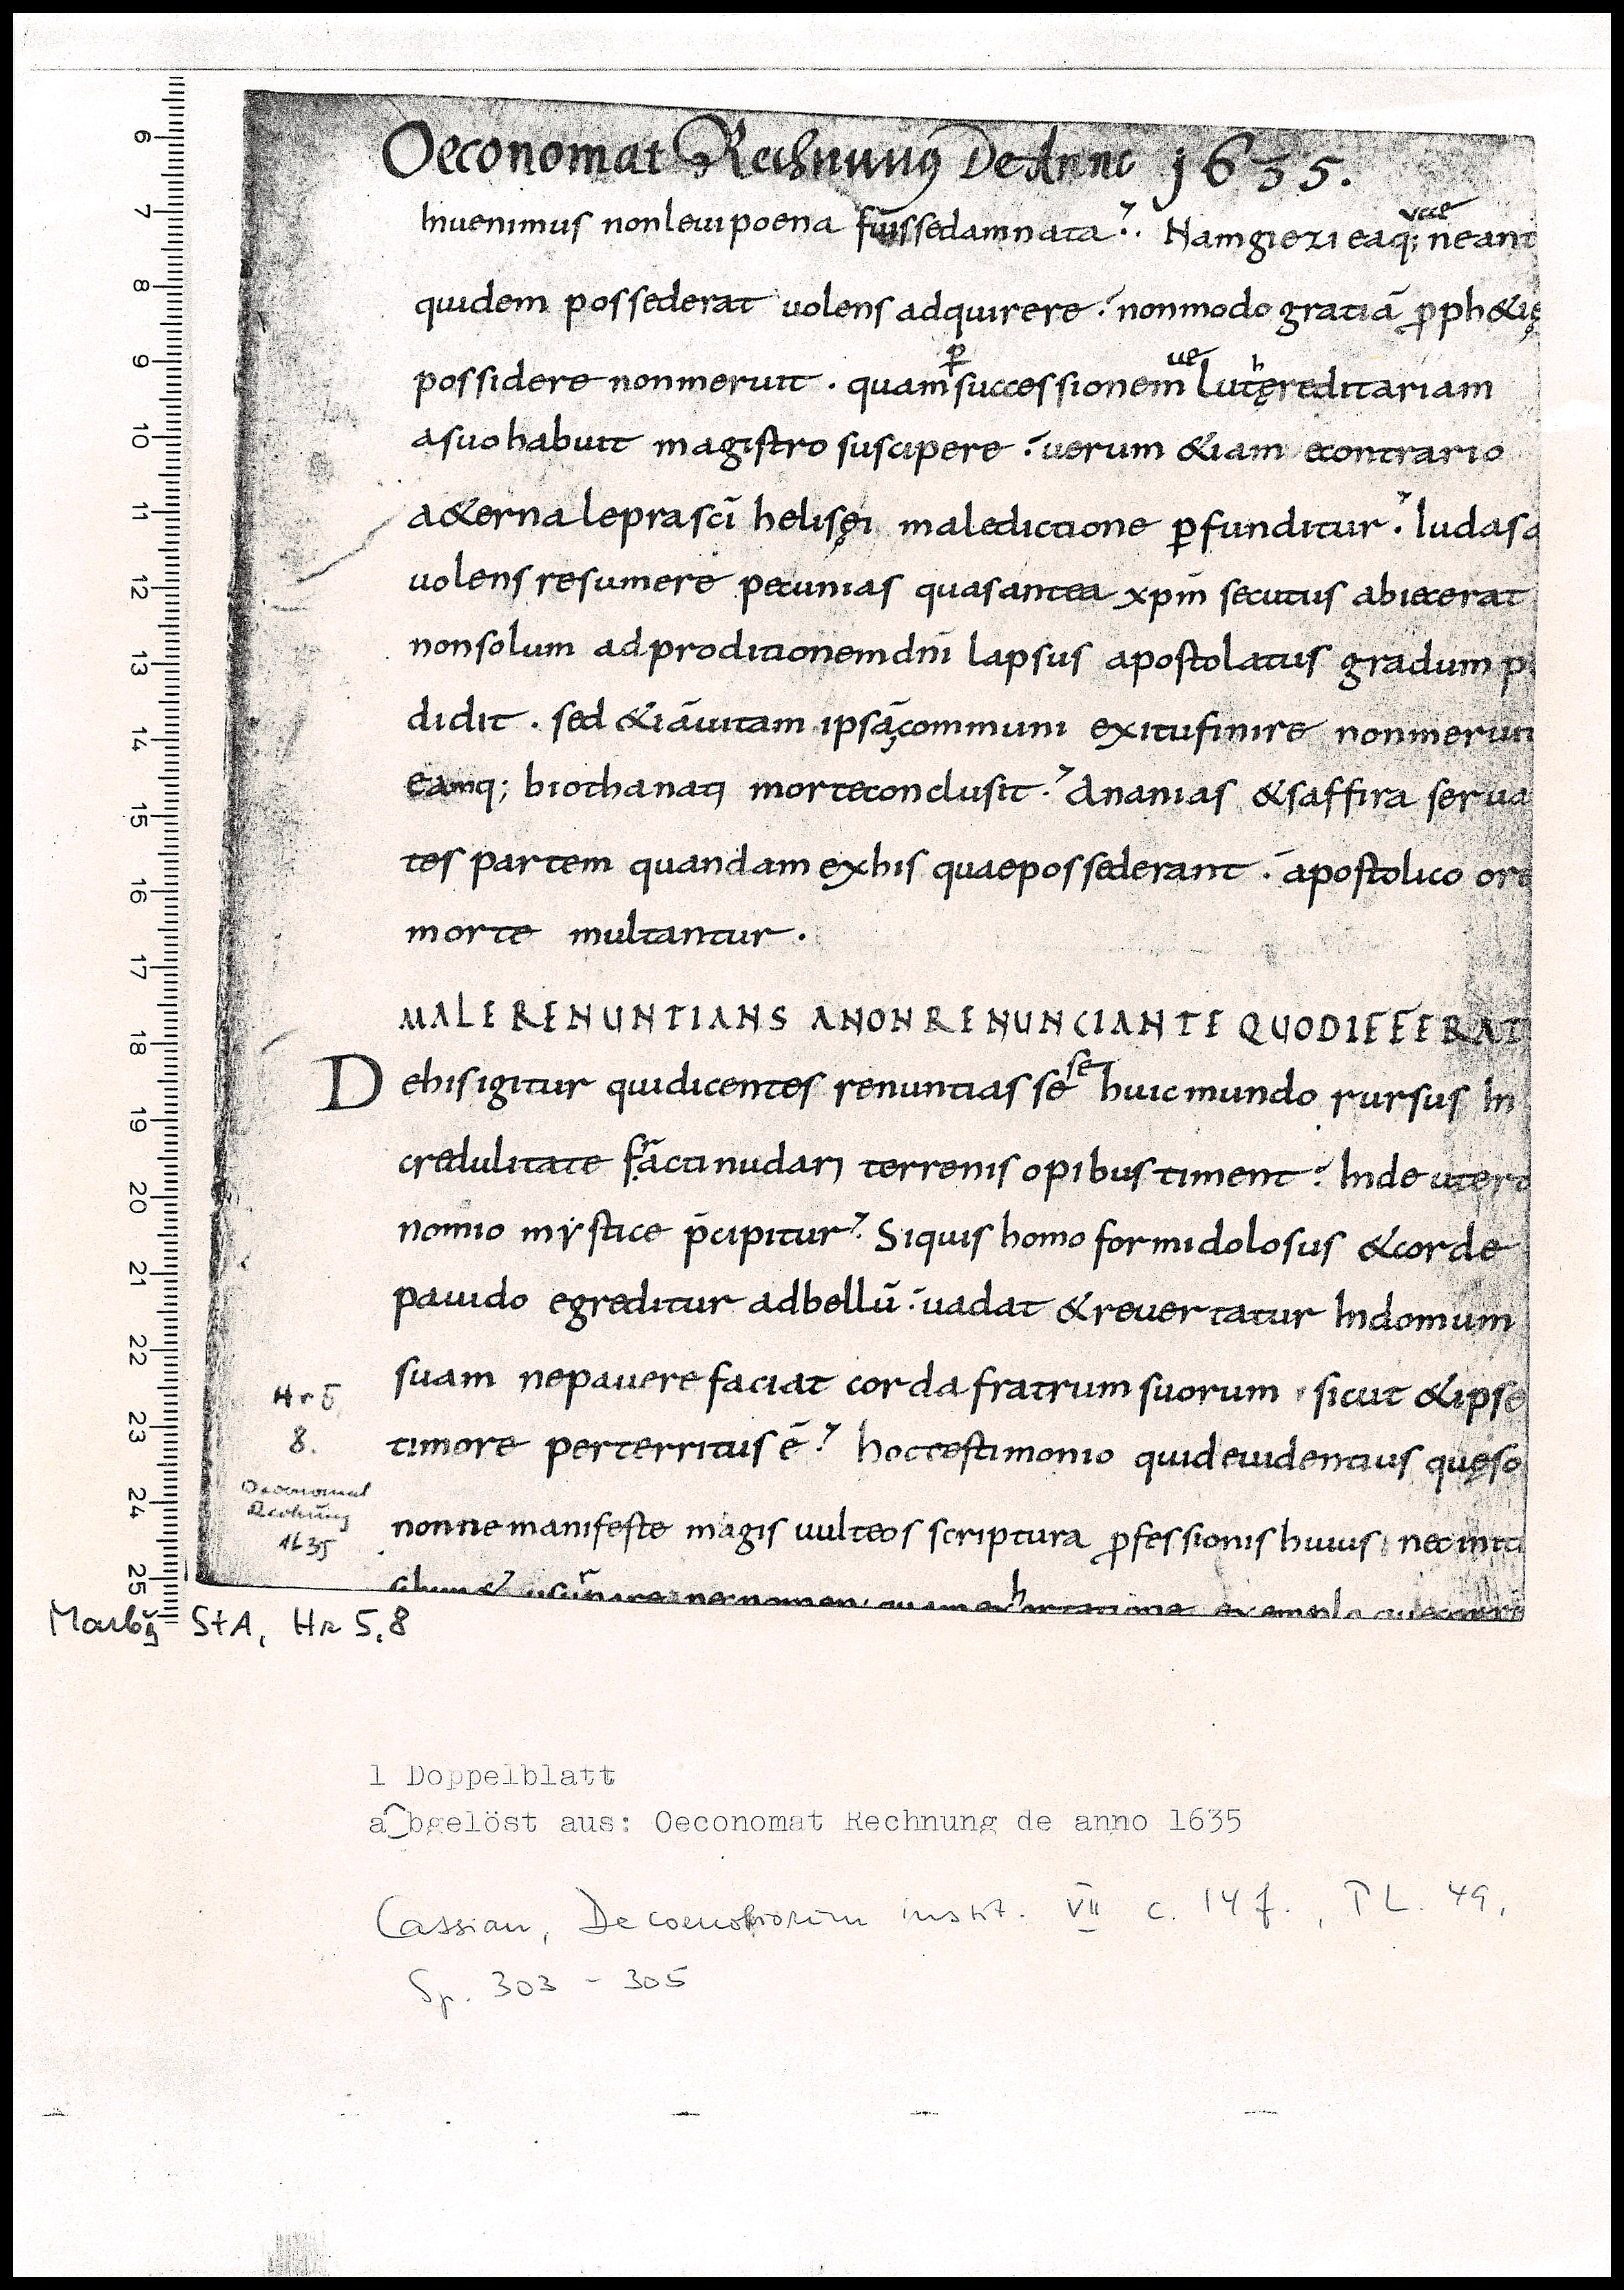 Oeconomat Rechnung De Anno 1635.
Inuenimus non leui poena fuisse damnata. Nam giezi ea q; ne ant
quidem possederat uolens adquirere. non modo gratiā ꝓph&ię
possidere non meruit. quam ꝑ successionem uelut hęreditariam
a suo habuit magistro suscipere. uerum &iam econtrario
a&erna lepra sc̄i helisęi maledictione ꝑfunditur. Iudas a
uolens resumere pecunias quas antea xp̄m secutus abiecerat
non solum ad proditionem dn̄i lapsus apostolatus gradum p
didit. sed &iā uitam ipsā communi exitu finire non meruit
eamq; biothanati morte conclusit. Ananias & saffira serua
tes partem quandam ex his quae possederant. apostolico ore
morte multantur.
MALE RENUNTIANS A NON RENUNCIANTE QUO DIFFERAT
De his igitur qui dicentes renuntiasse se huic mundo rursus In
credulitate fracti nudari terrenis opibus timent. In deutero
nomio mystice p̄cipitur. Si quis homo formidolosus & corde
pauido egreditur ad bellū. uadat & reuertatur In domum
suam ne pauere faciat corda fratrum suorum, sicut & ipse
timore perterritus ē. hoc testimonio quid euidentius quęso
nonne manifeste magis uult eos scriptura ꝓfessionis huius nec inta
exemplo
Hr 5
8.
Oeconomat
Rechnung
1635
6
7
8
9
10
11
12
13
14
15
16
17
18
19
20
21
22
23
24
25
Marbg StA, Hr 5,8
1 Doppelblatt
abgelöst aus: Oeconomat Rechnung de anno 1635
Cassian, De coenobiorum instit. VII c. 14 f., PL. 49,
Sp. 303 - 305